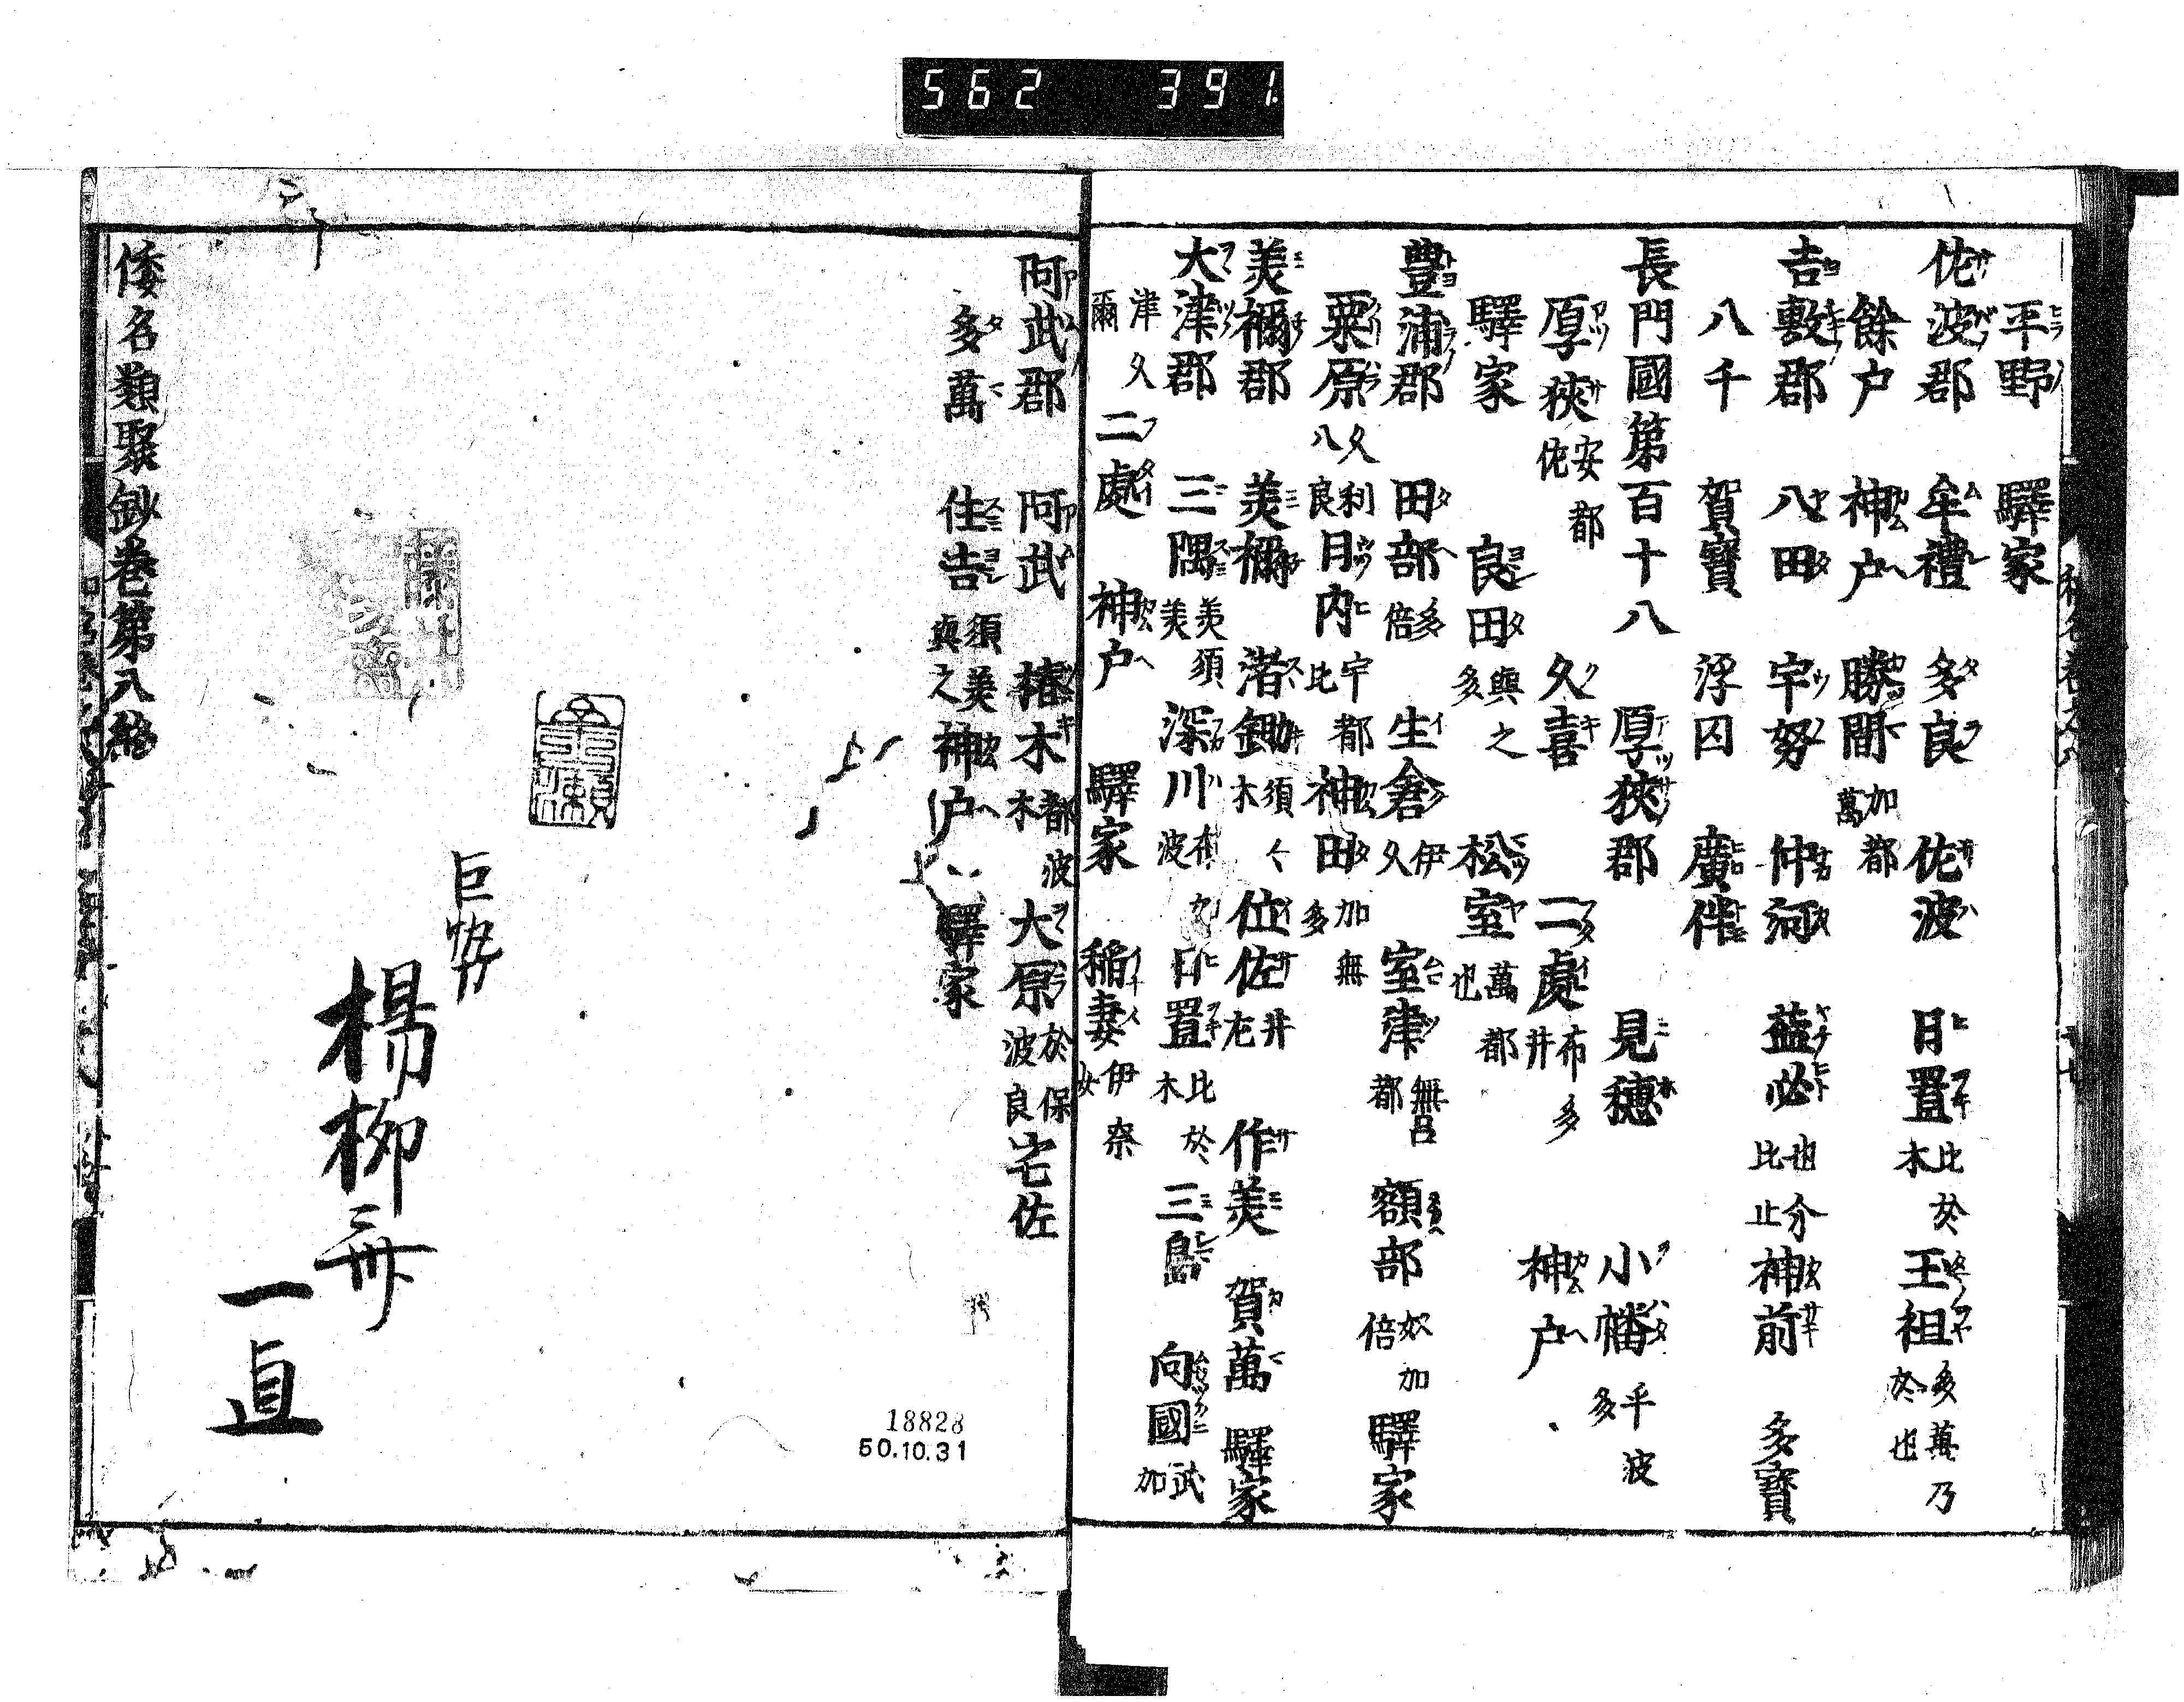 562 391
平野 驛家
佐波郡 牟禮 多良 佐波 日置 比於木 玉祖 多萬乃於也
餘戶 神戶 勝間 加都萬
吉敷郡 八田 宇努 仲河 益必 也介比止 神前 多寶
八千 賀寶 浮囚 廣伴
長門國第百十八
厚狹郡 見穗 小幡 乎波多
厚狹 安都佐 久喜 二處 布多井 神戶
驛家 良田 與之多 松室 萬都也
豊浦郡 田部 多倍 生倉 伊久 室津 無呂都 額部 奴加倍 驛家
粟原 久利八良 日内 宇都比 神田 加無多
美禰郡 美禰 渚鋤 須〱木 位佐 井左 作美 賀萬 驛家
大津郡 三隅 美須美 深川 布加波 日置 比於木 三島 向國 武加
津久爾 二處 神戶 驛家 稲妻 伊奈女
阿武郡 阿武 椿木 都波木 大原 於保波良 宅佐
多萬 住吉 須美與之 神戶 驛家
巨勢
楊柳三册
一直
18828
50.10.31
倭名類聚鈔卷第八終